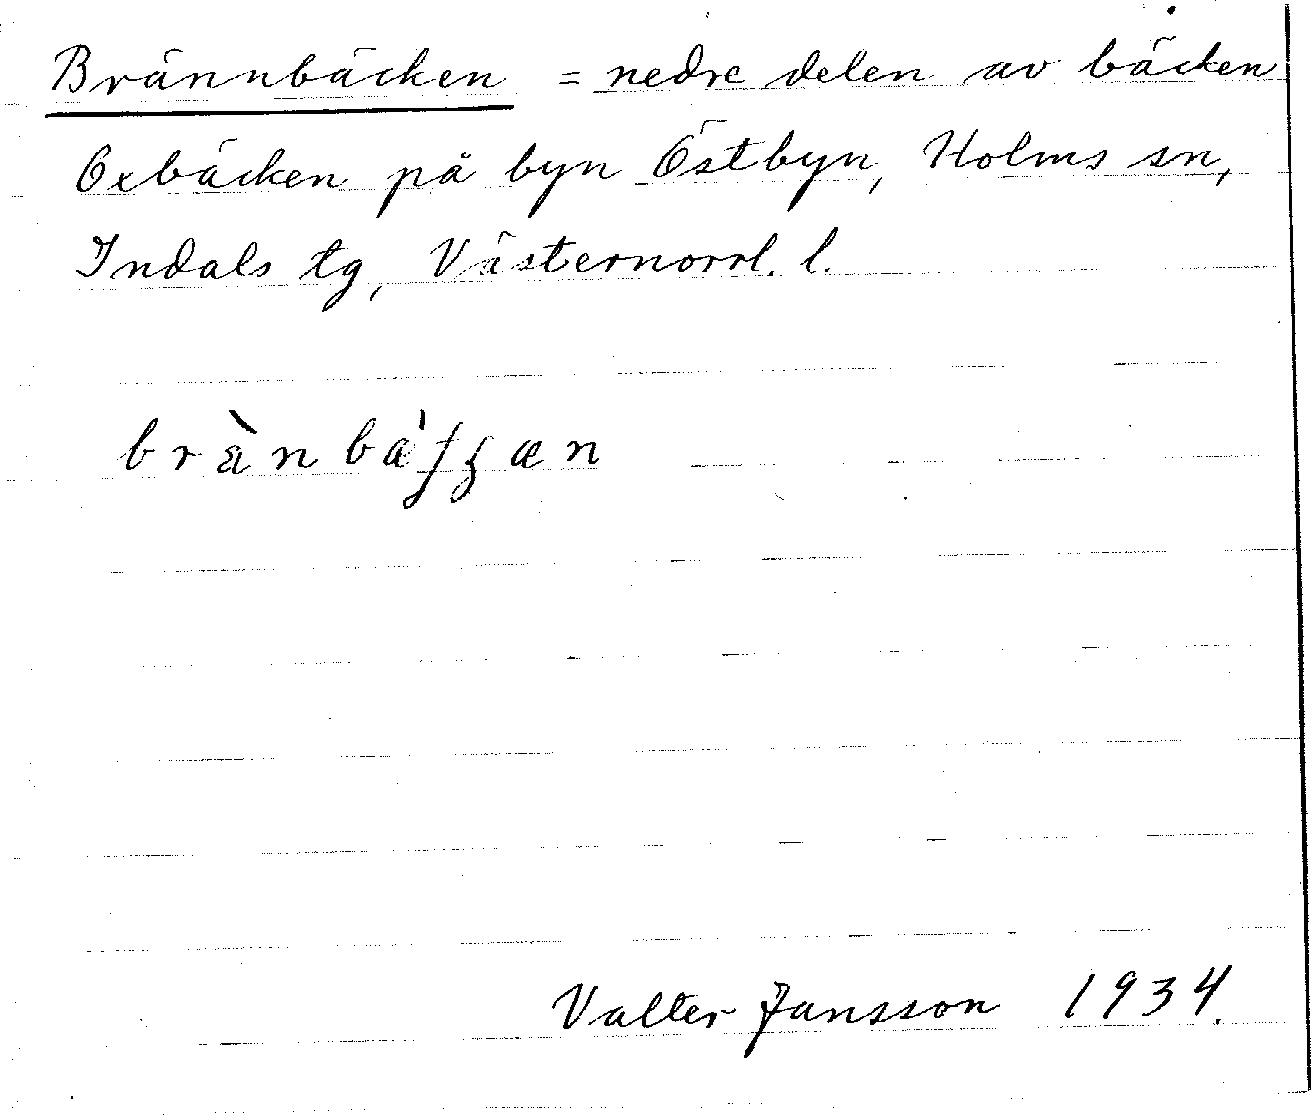 Brännbäcken = nedre delen av bäcken
Oxbäcken på byn Östbyn, Holms sn,
Indals tg, Västernorrl. l.
Valter Jansson 1934.